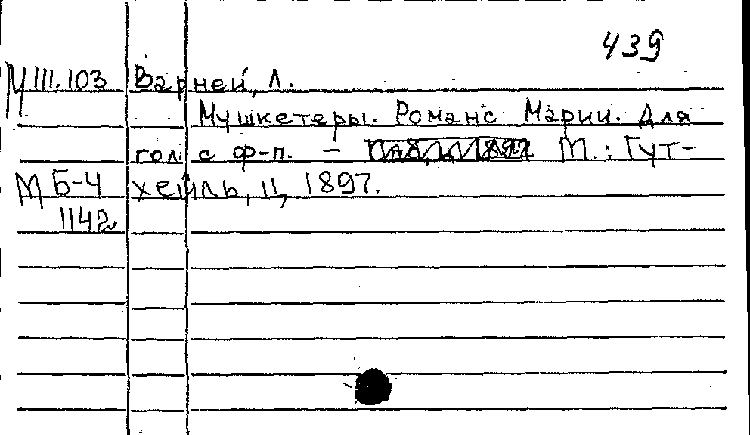 439
М III.103 Варней, Л.
Мушкетеры. Романс Марии. Для
гол. с ф-п. – М.: Гут-
М Б-4 хейль, ц, 1897.
1142